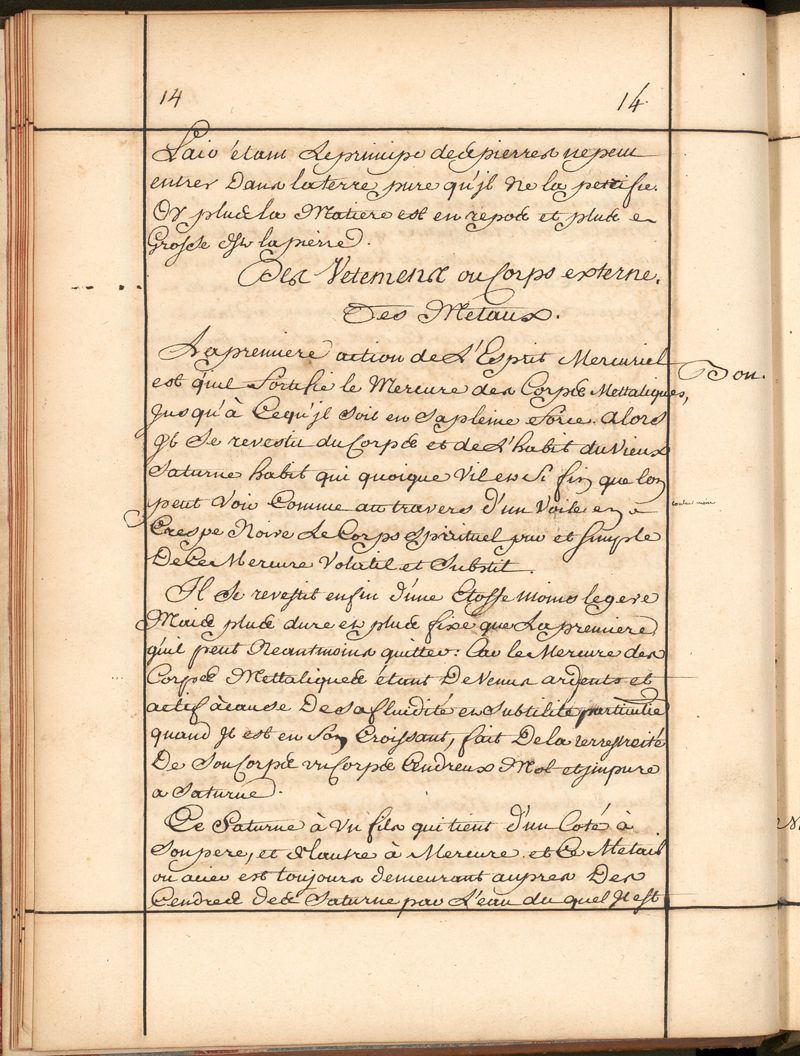 14 14
L'air étant Le principe des pierres ne peut
entrer Dans la terre pure qu'jl Ne la petrifie.
Or plus la Matiere est en repos et plus
Grosse est la pierre.
Des Vetemens ou Corps externe.
Des Metaux.
La premiere action de L'Esprit Mercuriel
est qu'il Fortifie le Mercure des Corps Mettaliques,
Jusqu'à Ce qu'jl soit en sa pleine Force. alors
jl Se revestit du Corps et de L'habit du Vieux
Saturne habit qui quoique Vil est Si fin que lon
peut Voir Comme au travers d'un Voile en
Crespe Noire Le Corps Spirituel pur et simple
De Ce Mercure Volatil et Subtil.
Il Se revestit enfin d'une Etoffe moins legere
Mais plus dure et plus fixe que La premiere
qu'il peut Neantmoins quitter: Car le Mercure des
Corps Mettaliques étant Devenus ardents et
actif àcause De sa fluidité en Subtilité
quand jl est en Son Croissant, fait De la terrestreité
De Son Corps vn Corps Cendreux Mol et jmpure
a Saturne.
Ce Saturne à Vn fils qui tient d'un Coté à
Son pere, et d'lautre à Mercure. et Ce Metail
ou acier est toujours demeurant aupres Des
Cendres de Saturne par L'eau du quel Jl est